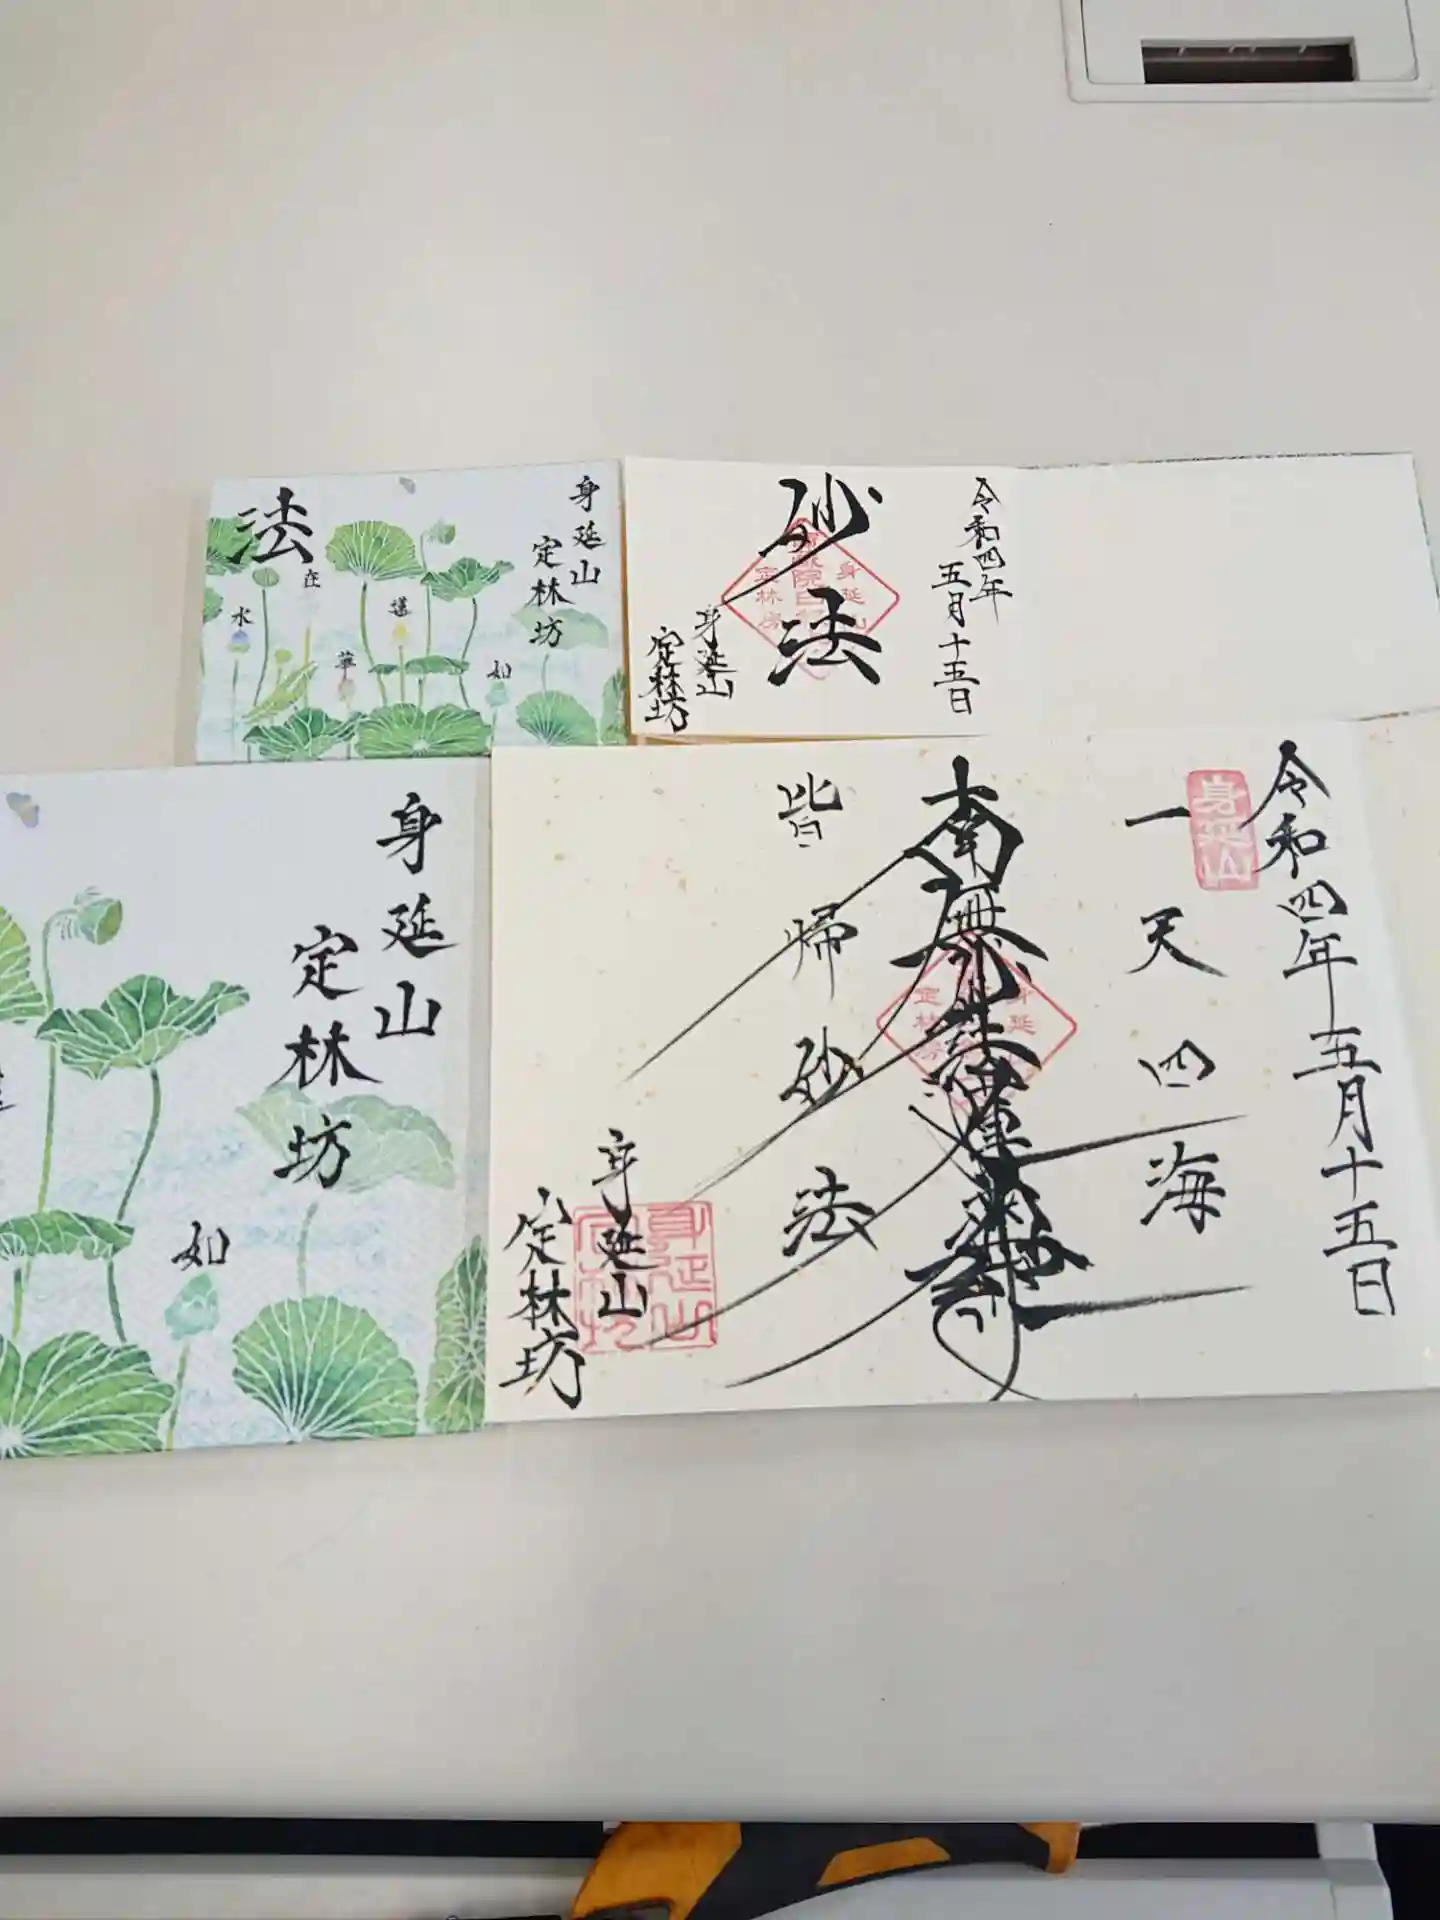 身延山
定林坊
法
在
水
蓮
華
如
令和四年
五月十五日
妙
法
身延山
定林坊
身延
定林房
身延山
定林坊
如
令和四年五月十五日
身延山
一天四海
南無妙法蓮華経
皆帰妙法
身延山
定林坊
身延
定林房
身延山